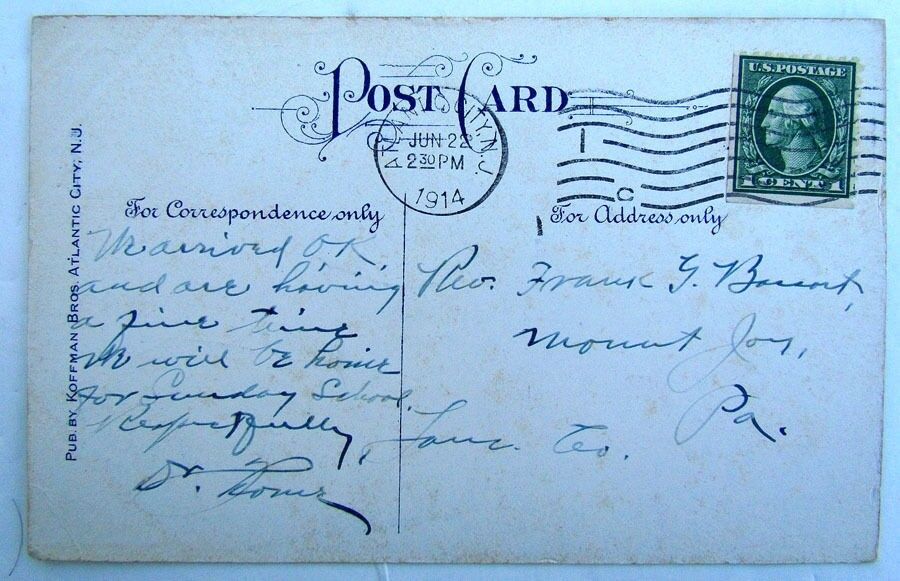 POST CARD
ATLANTIC CITY, N.J.
JUN 22
2 30 PM
1914
U.S. POSTAGE
1 CENT 1
For Correspondence only
For Address only
We arrived O.K.
and are having
a fine time
We will be home
for Sunday School.
Respectfully,
Dr.
Rev. Frank G.
Mount Joy,
Pa.
Lanc. Co.
PUB. BY KOFFMAN BROS. ATLANTIC CITY, N.J.